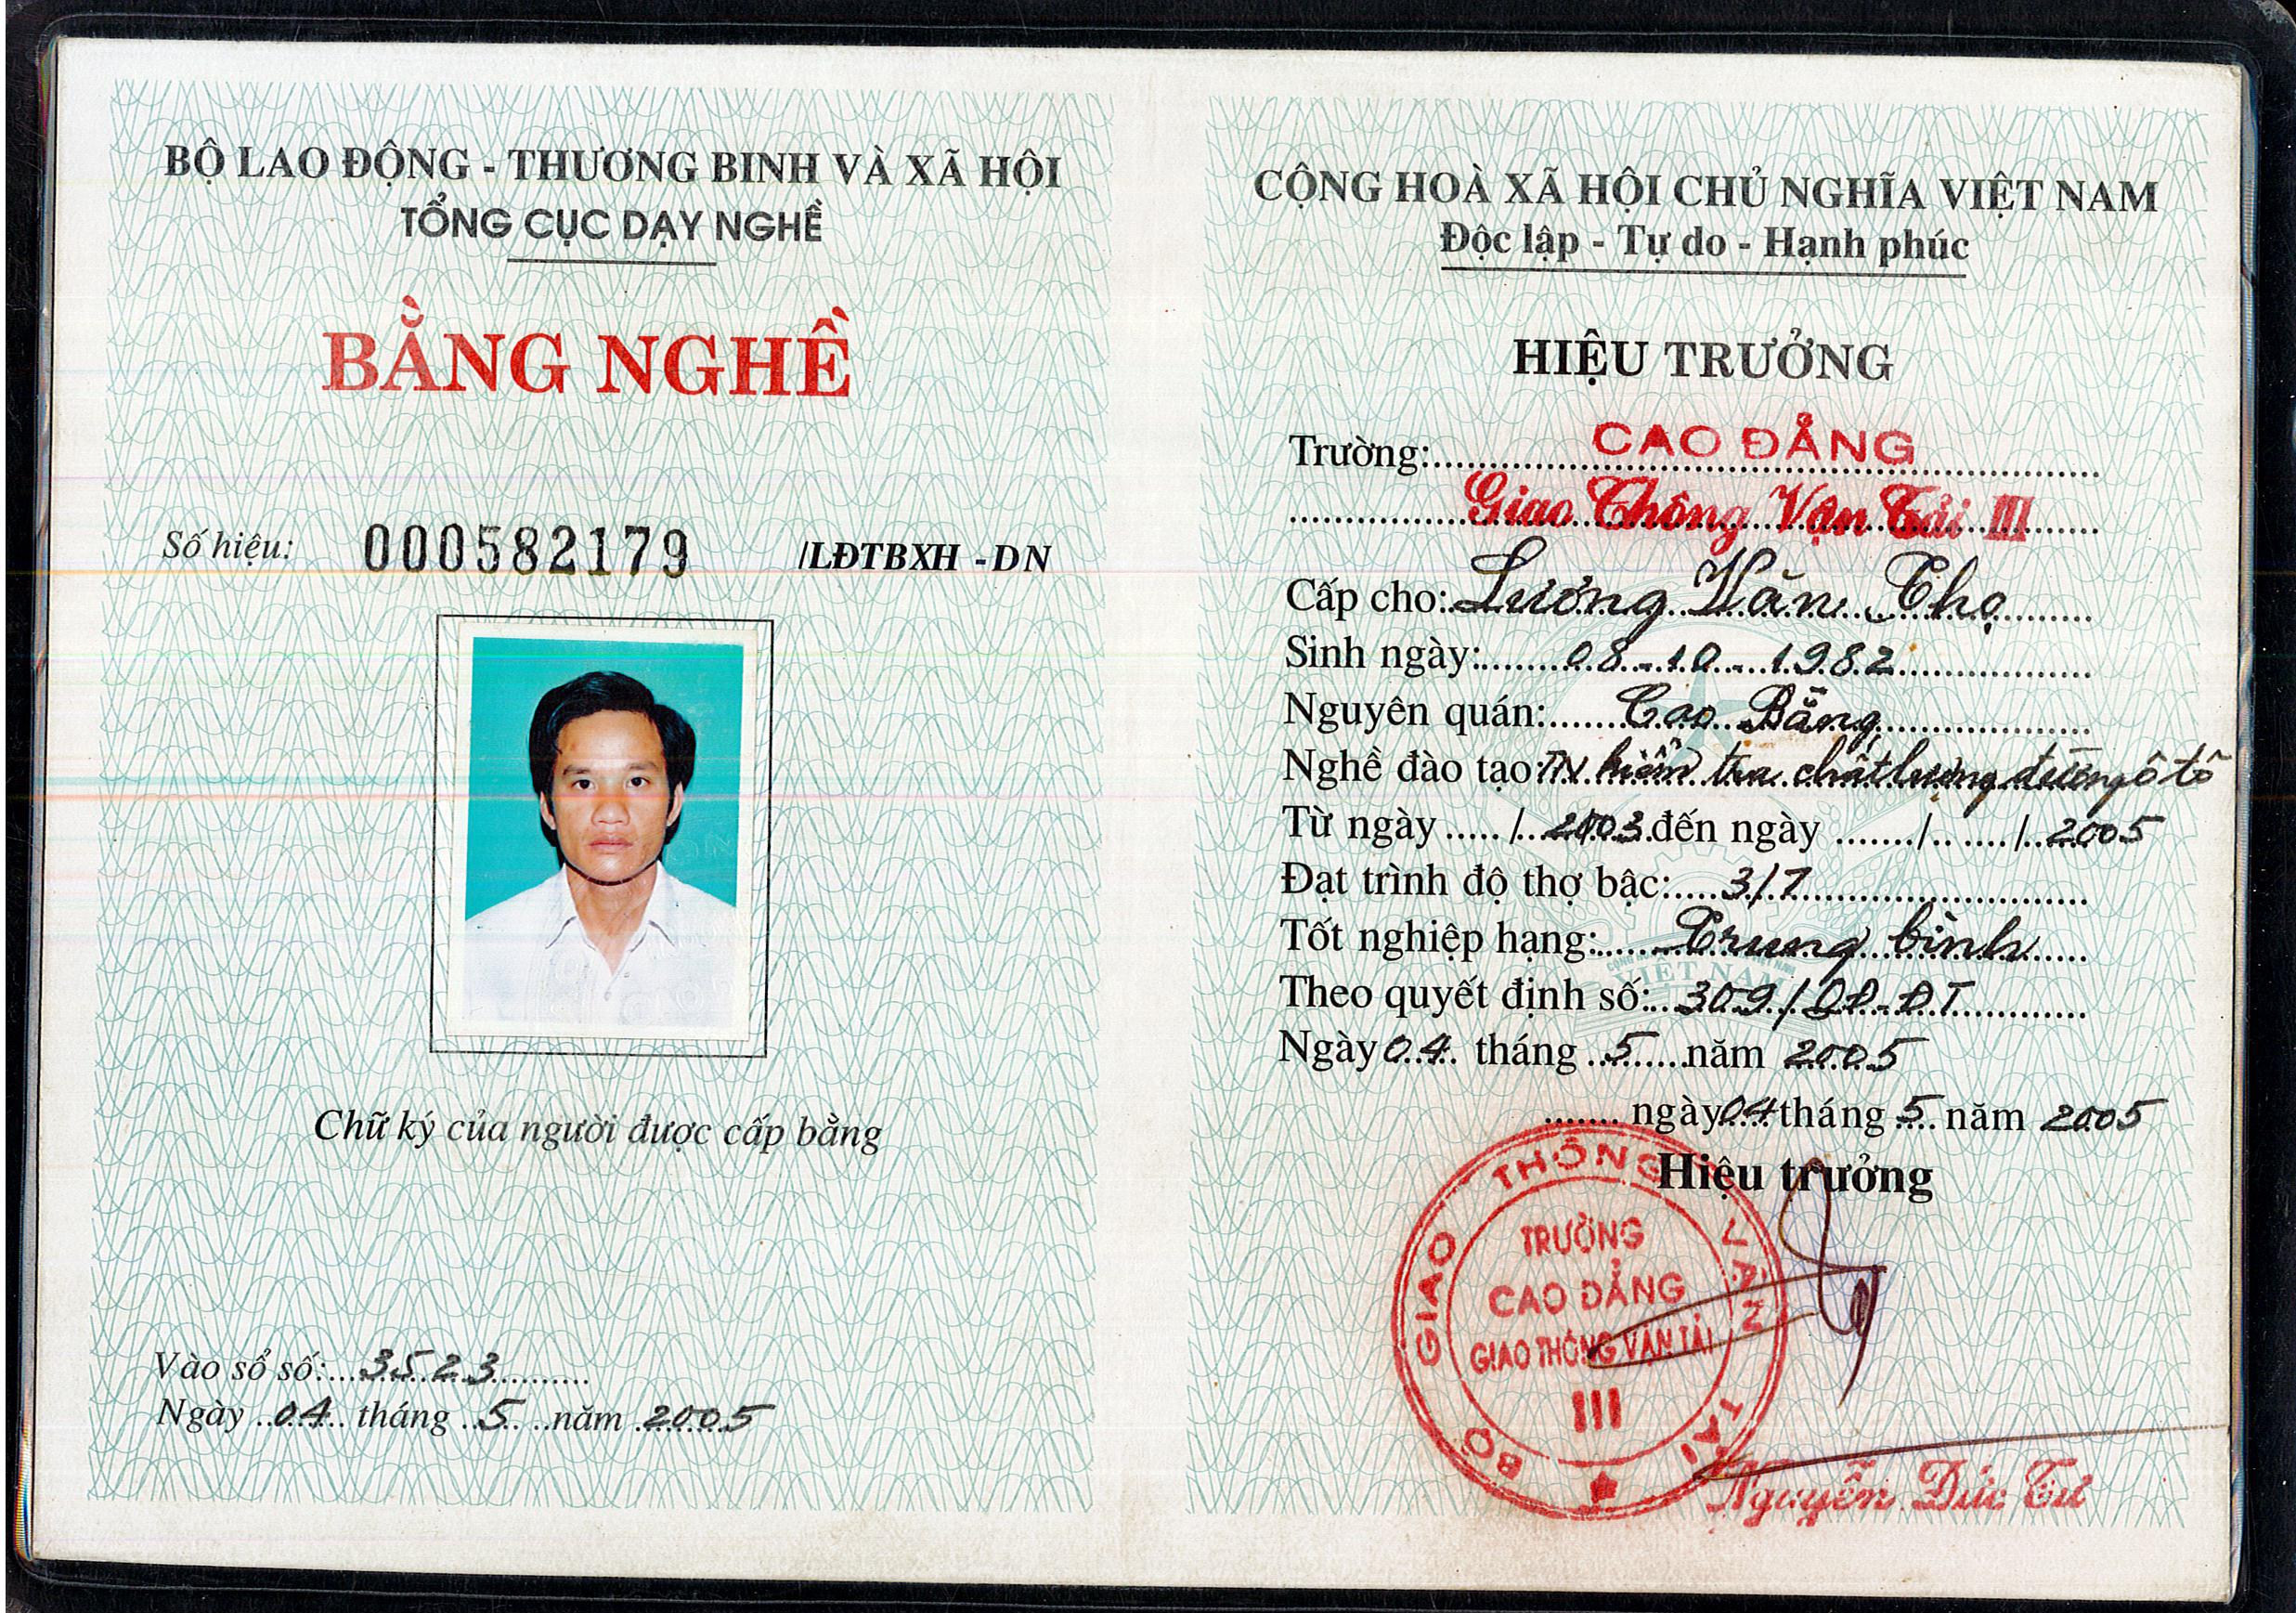 BỘ LAO ĐỘNG - THƯƠNG BINH VÀ XÃ HỘI
TỔNG CỤC DẠY NGHỀ
BẰNG NGHỀ
Số hiệu: 000582179 /LĐTBXH - DN
Chữ ký của người được cấp bằng
Vào sổ số: 3523
Ngày 04 tháng 5 năm 2005
CỘNG HOÀ XÃ HỘI CHỦ NGHĨA VIỆT NAM
Độc lập - Tự do - Hạnh phúc
HIỆU TRƯỞNG
Trường: CAO ĐẲNG
Giao Thông Vận Tải III
Cấp cho: Lương Văn Thọ
Sinh ngày: 08-10-1982
Nguyên quán: Cao Bằng
Nghề đào tạo: TN kiểm tra chất lượng đường ô tô
Từ ngày ..... /.. 2003 đến ngày ......./.. ..../.. 2005
Đạt trình độ thợ bậc: 3/7
Tốt nghiệp hạng: Trung bình
Theo quyết định số: 309/QĐ-ĐT
Ngày 04 tháng 5 năm 2005
....... ngày 04 tháng 5 năm 2005
Hiệu trưởng
BỘ GIAO THÔNG VẬN TẢI
TRƯỜNG
CAO ĐẲNG
GIAO THÔNG VẬN TẢI
III
Nguyễn Đức Tư